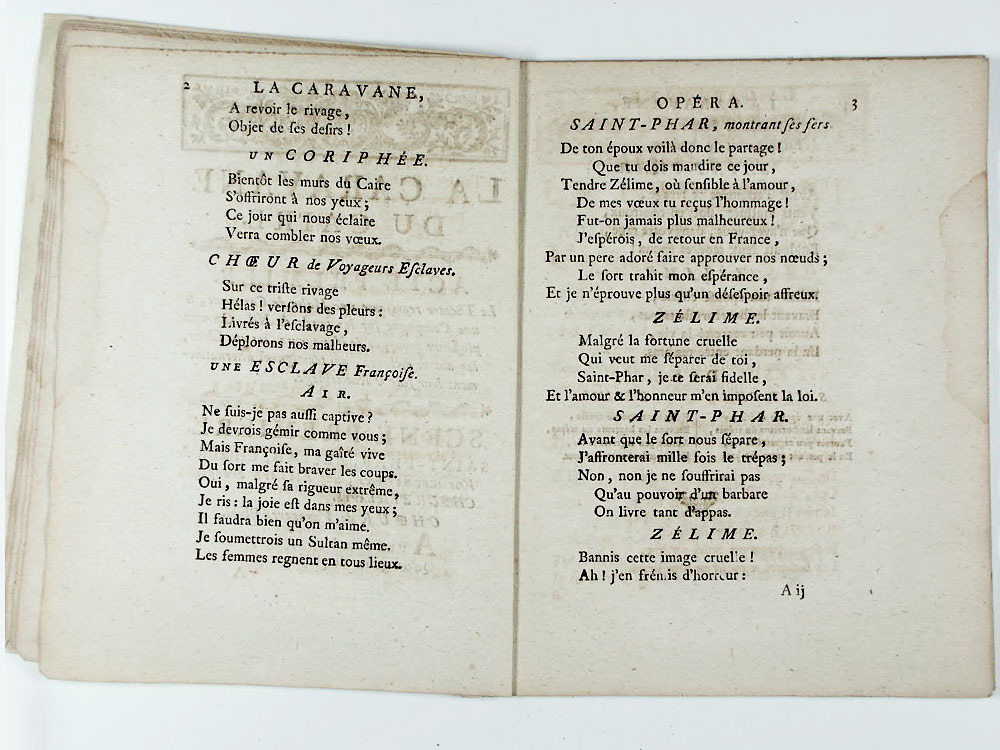 2
LA CARAVANE,
A revoir le rivage,
Objet de ſes deſirs !
UN CORIPHÉE.
Bientôt les murs du Caire
S'offriront à nos yeux ;
Ce jour qui nous éclaire
Verra combler nos vœux.
CHŒUR de Voyageurs Eſclaves.
Sur ce triſte rivage
Hélas ! verſons des pleurs :
Livrés à l'eſclavage,
Déplorons nos malheurs.
UNE ESCLAVE Françoiſe.
AIR.
Ne ſuis-je pas auſſi captive ?
Je devrois gémir comme vous ;
Mais Françoiſe, ma gaîté vive
Du ſort me fait braver les coups.
Oui, malgré ſa rigueur extrême,
Je ris : la joie eſt dans mes yeux ;
Il faudra bien qu'on m'aime.
Je ſoumettrois un Sultan même.
Les femmes regnent en tous lieux.
OPÉRA.
3
SAINT-PHAR, montrant ſes fers
De ton époux voilà donc le partage !
Que tu dois maudire ce jour,
Tendre Zélime, où ſenſible à l'amour,
De mes vœux tu reçus l'hommage !
Fut-on jamais plus malheureux !
J'eſpérois, de retour en France,
Par un pere adoré faire approuver nos nœuds ;
Le ſort trahit mon eſpérance,
Et je n'éprouve plus qu'un déſeſpoir affreux.
ZÉLIME.
Malgré la fortune cruelle
Qui veut me ſéparer de toi,
Saint-Phar, je te ſerai fidelle,
Et l'amour & l'honneur m'en impoſent la loi.
SAINT-PHAR.
Avant que le ſort nous ſépare,
J'affronterai mille fois le trépas ;
Non, non je ne ſouffrirai pas
Qu'au pouvoir d'un barbare
On livre tant d'appas.
ZÉLIME.
Bannis cette image cruelle !
Ah ! j'en frémis d'horreur :
A ij